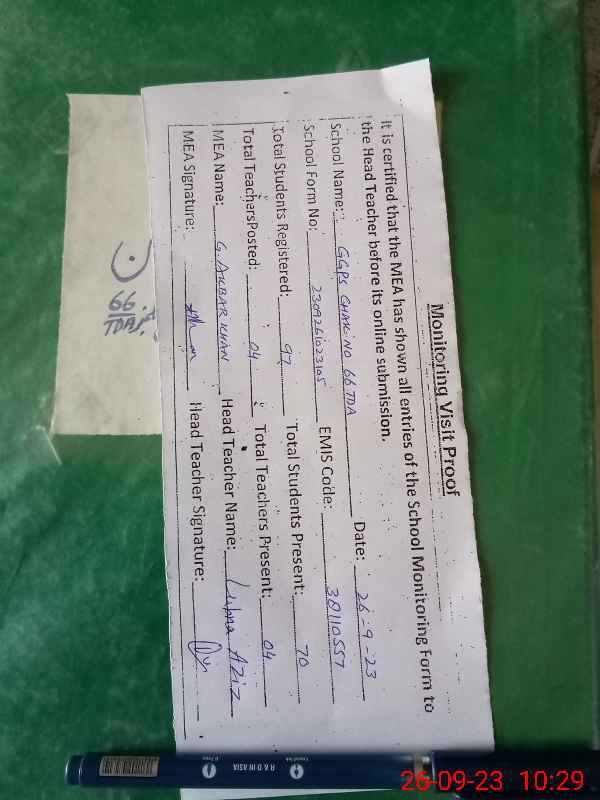 Monitoring Visit Proof
It is certified that the MEA has shown all entries of the School Monitoring Form to
the Head Teacher before its online submission.
School Name: GGPS CHAK NO 66 TDA Date: 26-9-23
School Form No: 2309261023105 EMIS Code: 38110557
Total Students Registered: 97 Total Students Present: 70
Total TeachersPosted: 04 Total Teachers Present: 04
MEA Name: G. AKBAR KHAN Head Teacher Name: Lubna Aziz
MEA Signature: Head Teacher Signature:
66
TDA
R & D IN ASIA
26-09-23 10:29